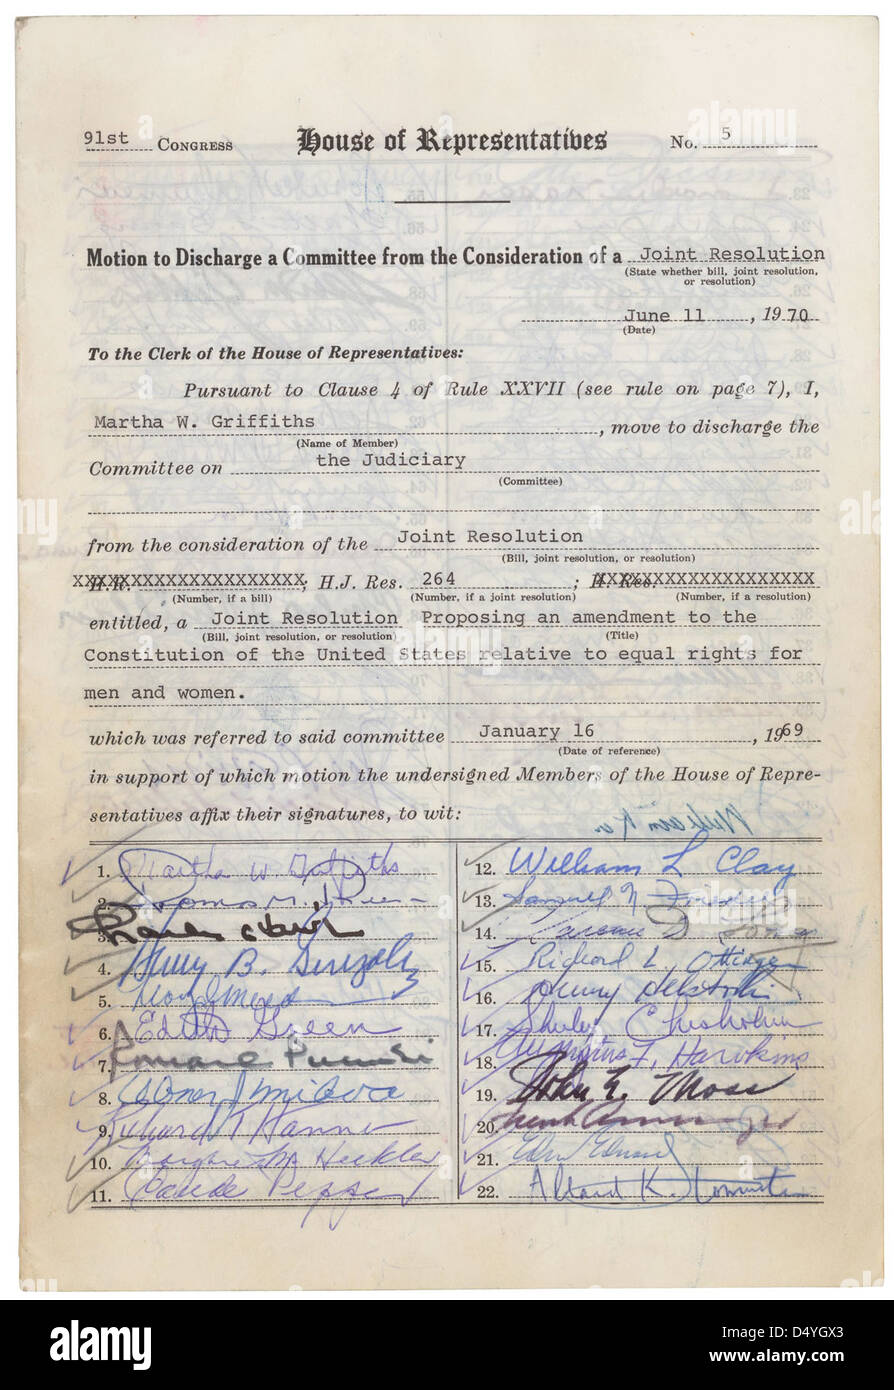 91st CONGRESS House of Representatives No. 5
Motion to Discharge a Committee from the Consideration of a Joint Resolution
(State whether bill, joint resolution,
or resolution)
June 11, 1970
(Date)
To the Clerk of the House of Representatives:
Pursuant to Clause 4 of Rule XXVII (see rule on page 7), I,
Martha W. Griffiths, move to discharge the
(Name of Member)
Committee on the Judiciary
(Committee)
from the consideration of the Joint Resolution
(Bill, joint resolution, or resolution)
H.R. XXXXXXXXXXXXXXXXXXXX; H.J. Res. 264; H. Res. XXXXXXXXXXXXXXXXXXXX
(Number, if a bill) (Number, if a joint resolution) (Number, if a resolution)
entitled, a Joint Resolution Proposing an amendment to the
(Bill, joint resolution, or resolution) (Title)
Constitution of the United States relative to equal rights for
men and women.
which was referred to said committee January 16, 1969
(Date of reference)
in support of which motion the undersigned Members of the House of Repre-
sentatives affix their signatures, to wit:
1. Martha W. Griffiths
2. Thomas M.
3.
4. Henry B. Gonzalez
5.
6. Edith Green
7.
8. Abner J Mikva
9. Richard T Hanna
10. Margaret M Heckler
11. Claude Pepper
12. William L Clay
13. Samuel N Friedel
14. Clarence D. Long
15. Richard L Ottinger
16. Henry Helstoski
17. Shirley Chisholm
18. Augustus F. Hawkins
19. John E. Moss
20. Frank Annunzio
21. Edwin Edwards
22. Allard K. Lowenstein
alamy
alamy
Image ID: D4YGX3
www.alamy.com